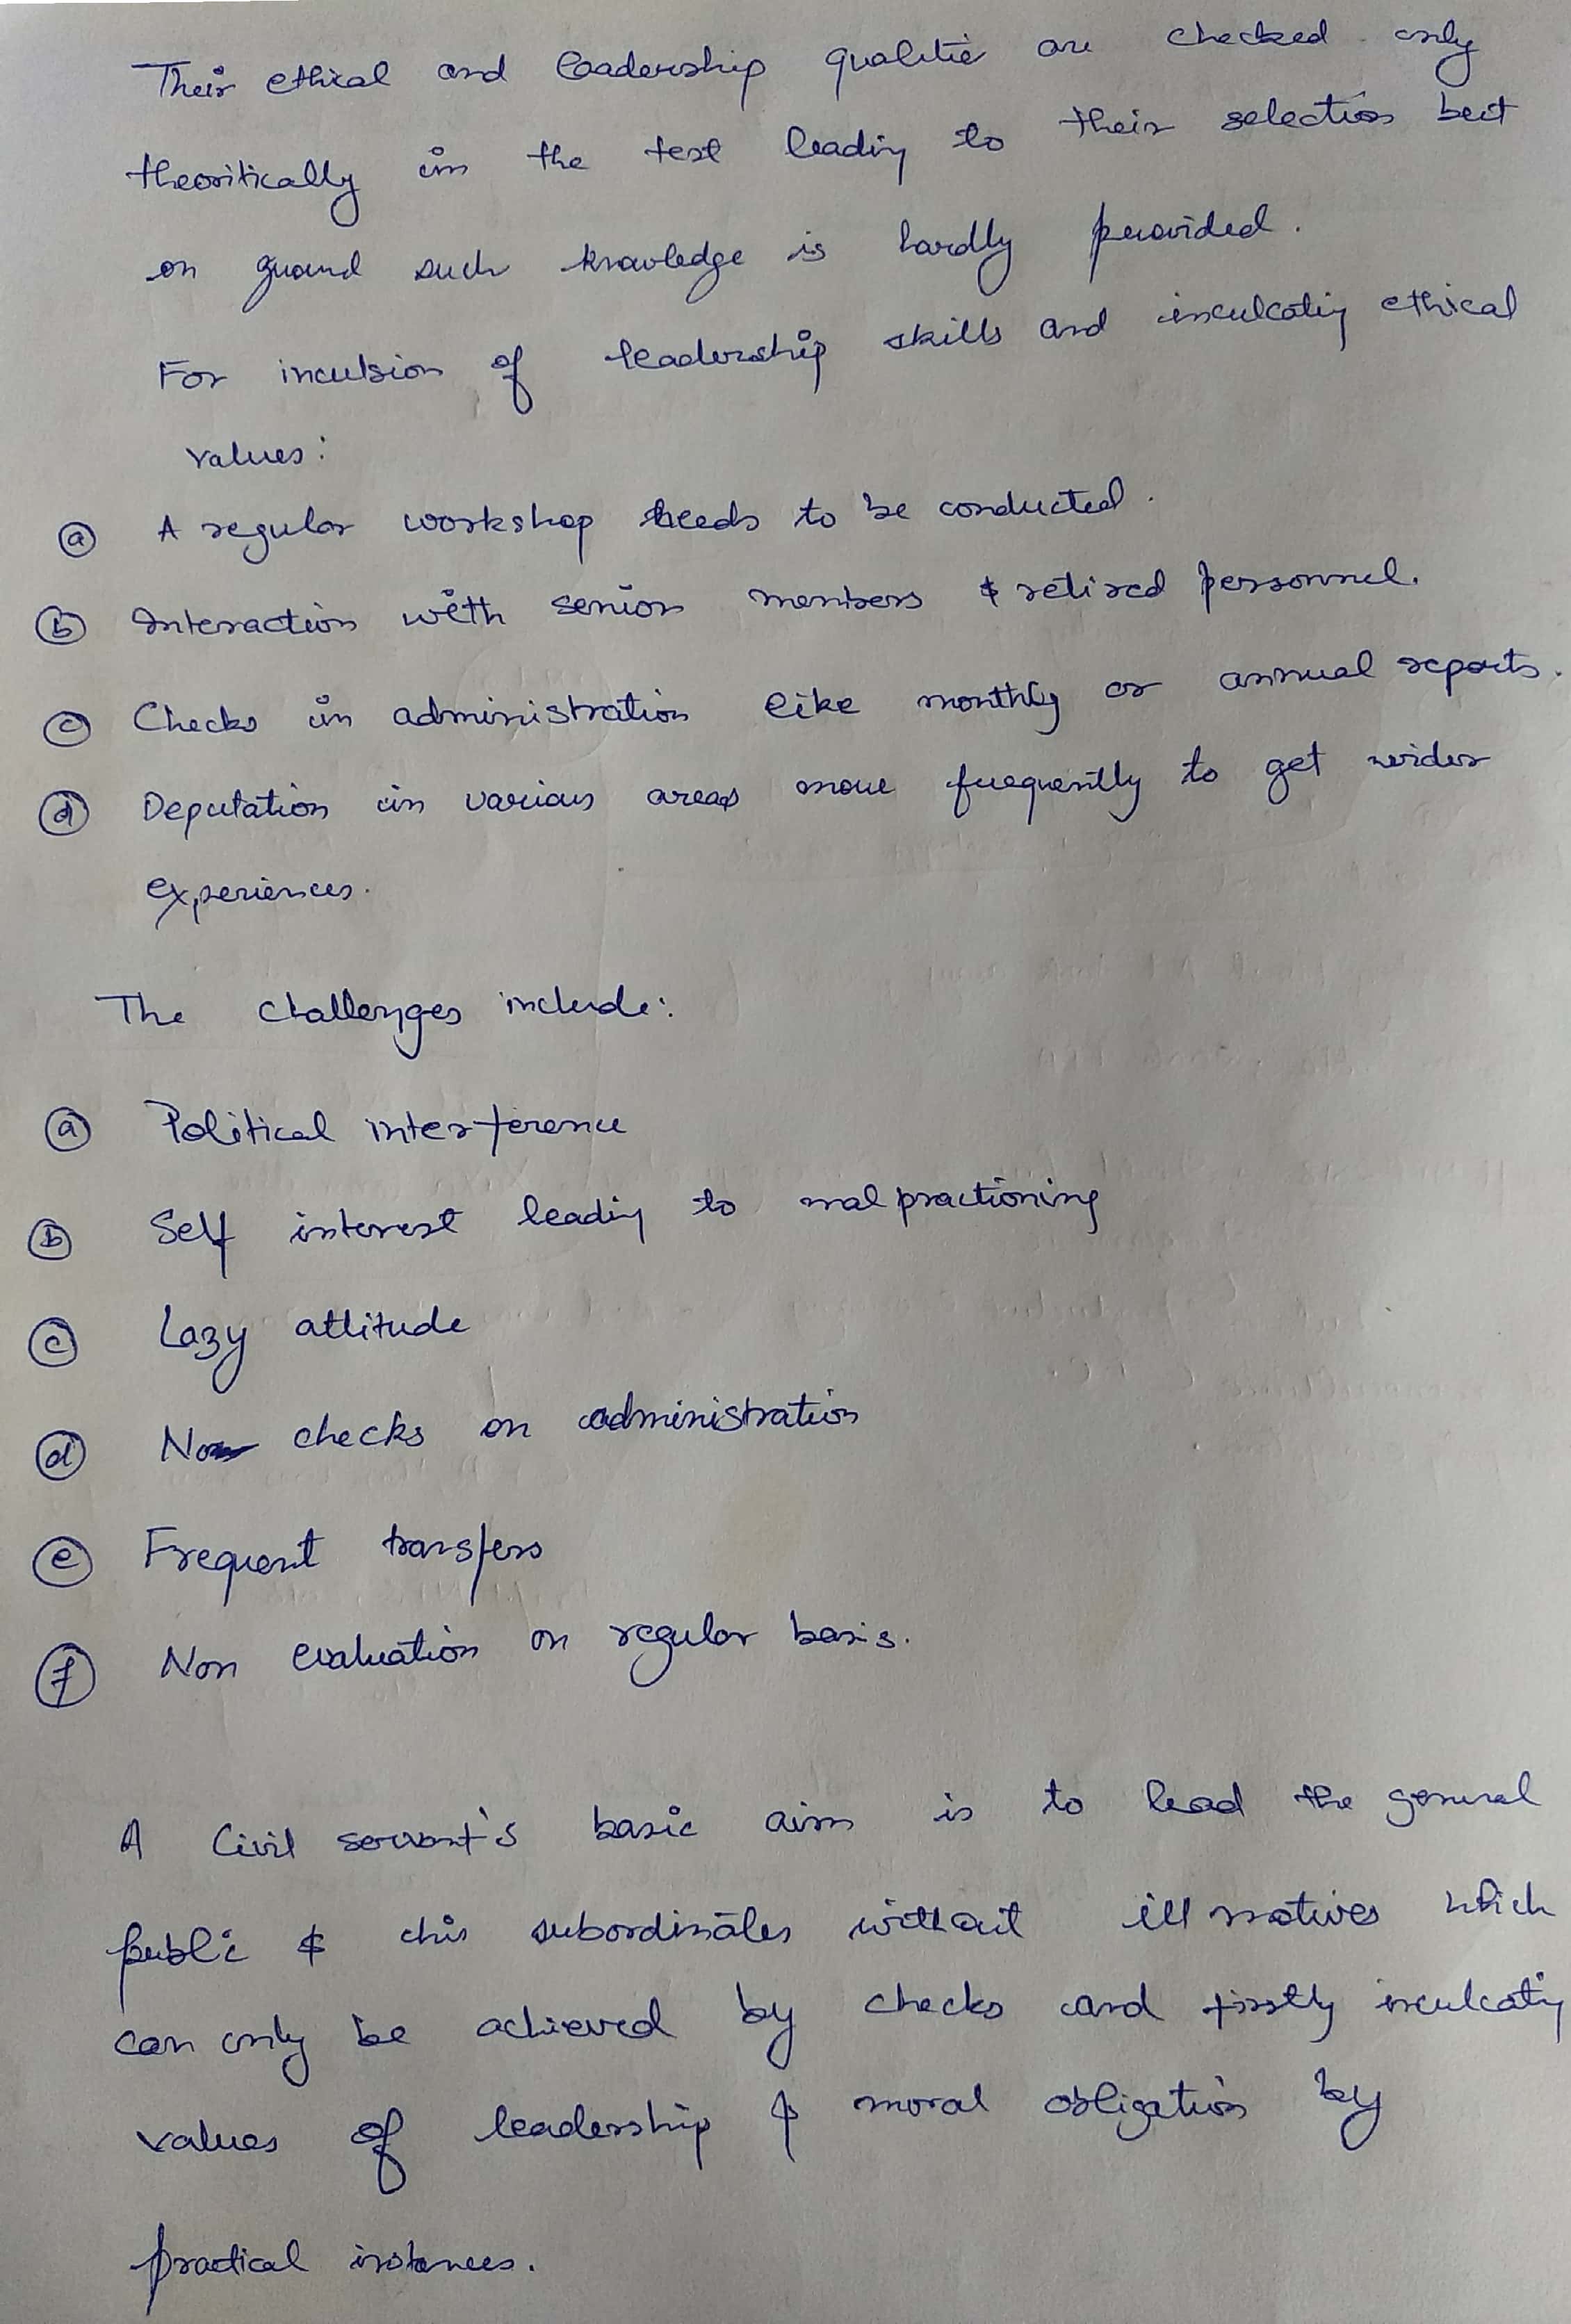 Their ethical and leadership qualitie are checked only
theoritically in the test leading to their selection but
on ground such knowledge is hardly provided.
For inculsion of leadership skills and inculcating ethical
values:
(a) A regular workshop needs to be conducted.
(b) Interaction with senior members & retired personnel.
(c) Checks in administration like monthly or annual reports.
(d) Deputation in various areas more frequently to get wider
experiences.
The challenges include:
(a) Political interference
(b) Self interest leading to malpractioning
(c) Lazy attitude
(d) No checks on administration
(e) Frequent transfers
(f) Non evaluation on regular basis.
A Civil servant's basic aim is to lead the general
public & his subordinates without ill motives which
can only be achieved by checks and firstly inculcating
values of leadership & moral obligation by
practical instances.